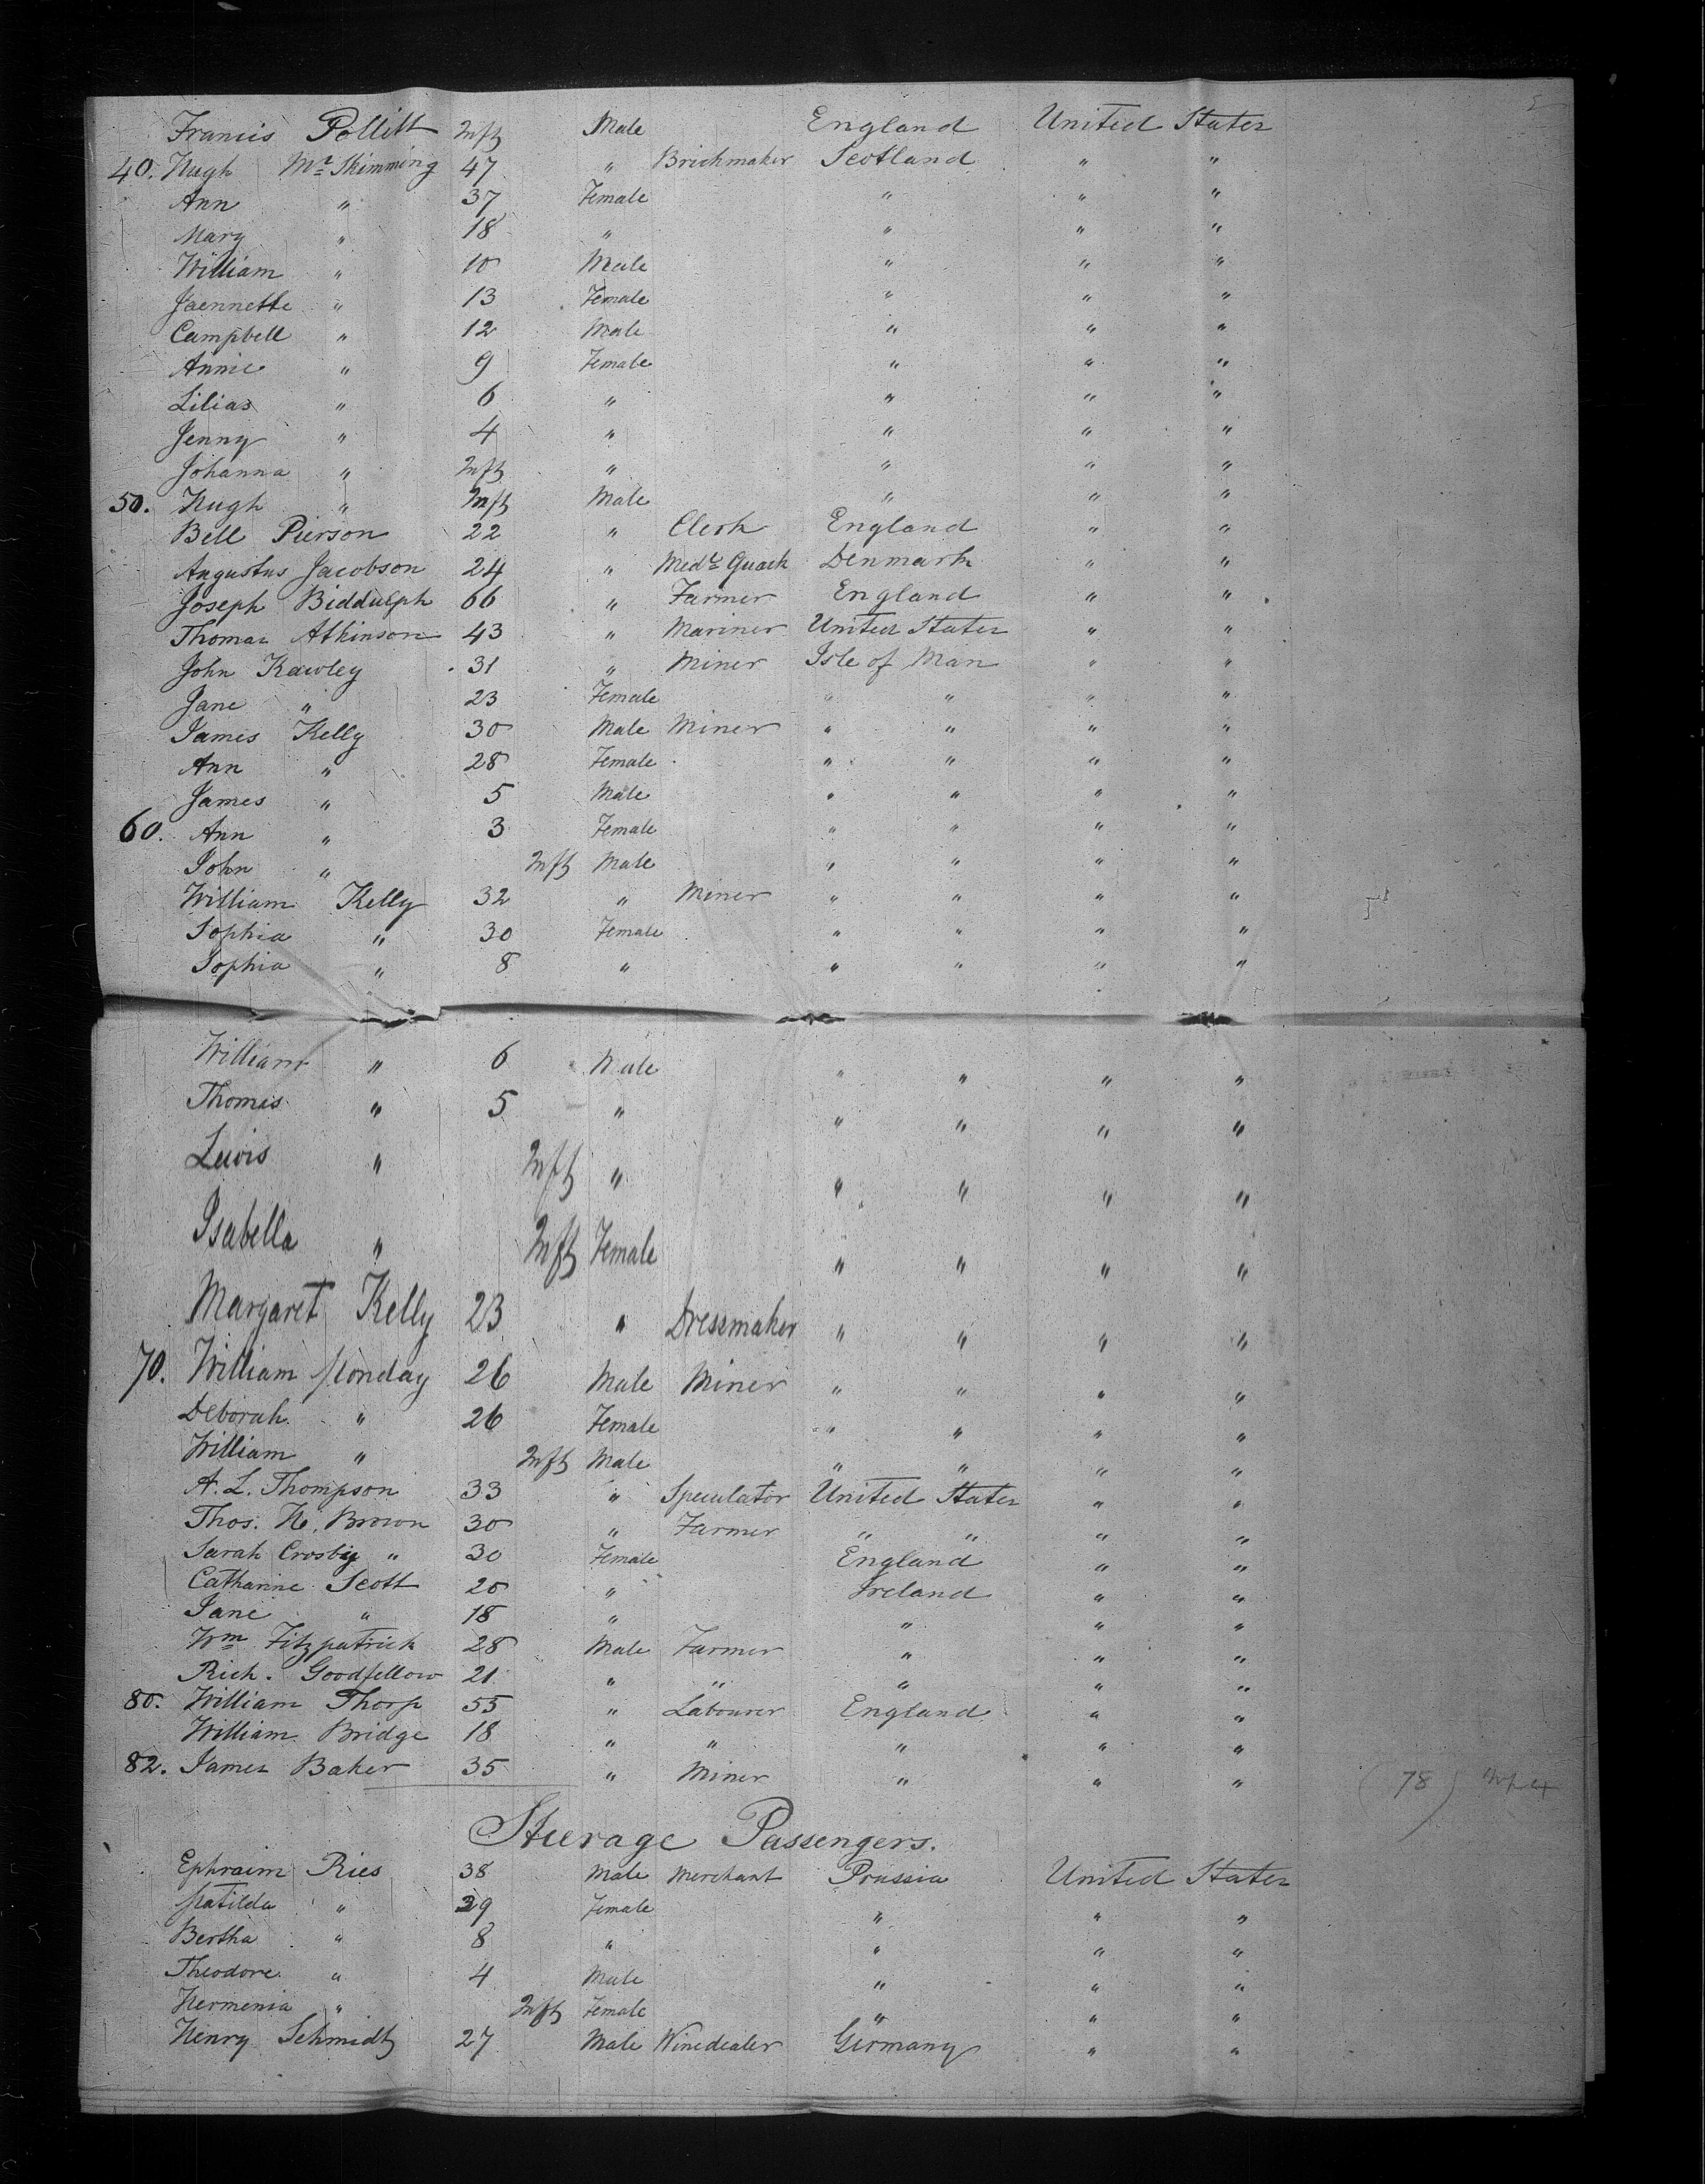 Francis Pollitt Inft Male England United States
40. Hugh Mc Skimming 47 " Brickmaker Scotland " "
Ann " 37 Female " " "
Mary " 18 " " " "
William " 10 Male " " "
Jaennette " 13 Female " " "
Campbell " 12 Male " " "
Annie " 9 Female " " "
Lilias " 6 " " " "
Jenny " 4 " " " "
Johanna " Inft " " " "
50. Hugh " Inft Male " " "
Bell Pierson 22 " Clerk England " "
Augustus Jacobson 24 " Medl Quack Denmark " "
Joseph Biddulph 66 " Farmer England " "
Thomas Atkinson 43 " Mariner United States " "
John Kawley 31 " Miner Isle of Man " "
Jane " 23 Female " " " "
James Kelly 30 Male Miner " " " "
Ann " 28 Female " " " "
James " 5 Male " " " "
60. Ann " 3 Female " " " "
John " Inft Male " " " "
William Kelly 32 " Miner " " " "
Sophia " 30 Female " " " "
Sophia " 8 " " " " "
William " 6 Male " " " "
Thomas " 5 " " " " "
Lewis " Inft " " " " "
Isabella " Inft Female " " " "
Margaret Kelly 23 " Dressmaker " " " "
70. William Monday 26 Male Miner " " " "
Deborah " 26 Female " " " "
William " Inft Male " " " "
A. L. Thompson 33 " Speculator United States " "
Thos. H. Brown 30 " Farmer " " " "
Sarah Crosbig " 30 Female England " "
Catharine Scott 20 " Ireland " "
Jane " 18 " " " "
Wm Fitzpatrick 28 Male Farmer " " "
Rich. Goodfellow 21 " " " " "
80. William Thorp 55 " Labourer England " "
William Bridge 18 " " " " "
82. James Baker 35 " Miner " " " (78)
Steerage Passengers.
Ephraim Ries 38 Male Merchant Prussia United States
Matilda " 29 Female " " "
Bertha " 8 " " " "
Theodore " 4 Male " " "
Hermenia " Inft Female " " "
Henry Schmidt 27 Male Winedealer Germany " "